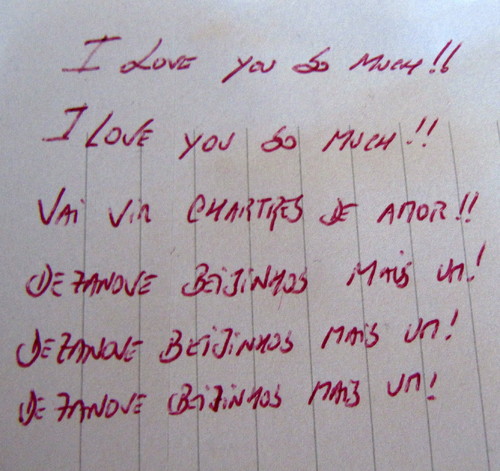 I LOVE YOU SO MUCH!!
I LOVE YOU SO MUCH!!
VAI VIR CHARTRES DE AMOR!!
DEZANOVE BEIJINHOS MAIS UM!
DEZANOVE BEIJINHOS MAIS UM!
DEZANOVE BEIJINHOS MAIS UM!